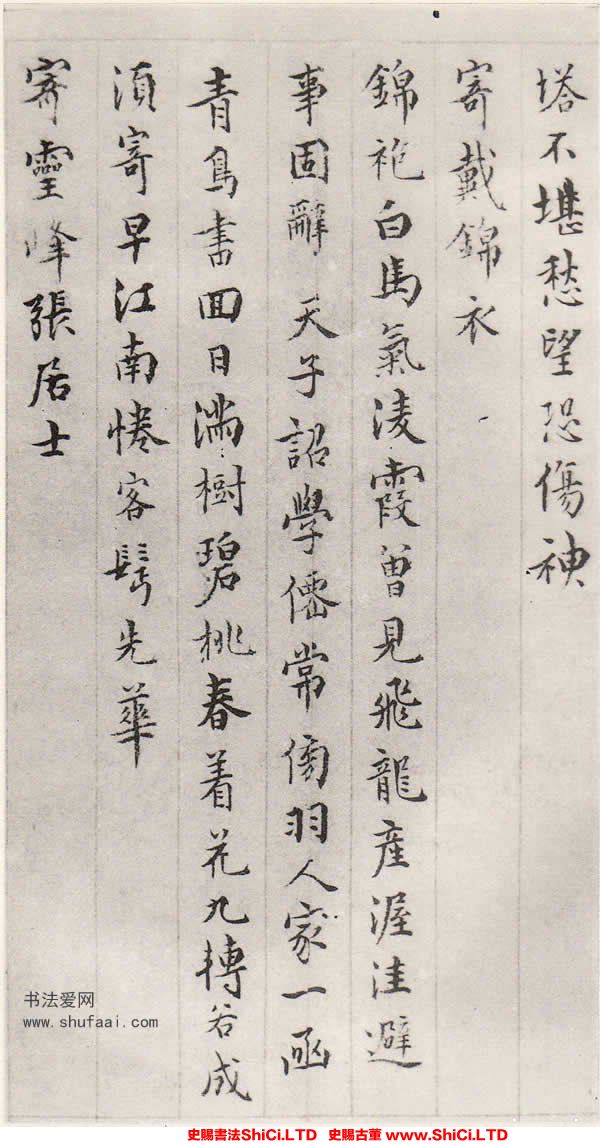 塔不堪愁望恐傷神
寄戴錦衣
錦袍白馬氣凌霞曾見飛龍産渥洼避
事固辭 天子詔學儒常傍羽人家一函
青鳥書回日滿樹碧桃春着花九轉若成
須寄早江南倦客鬂先華
寄靈峰張居士
书法爱网
www.shufaai.com
史賜書法ShiCi.LTD 史賜古董 www.ShiCi.LTD